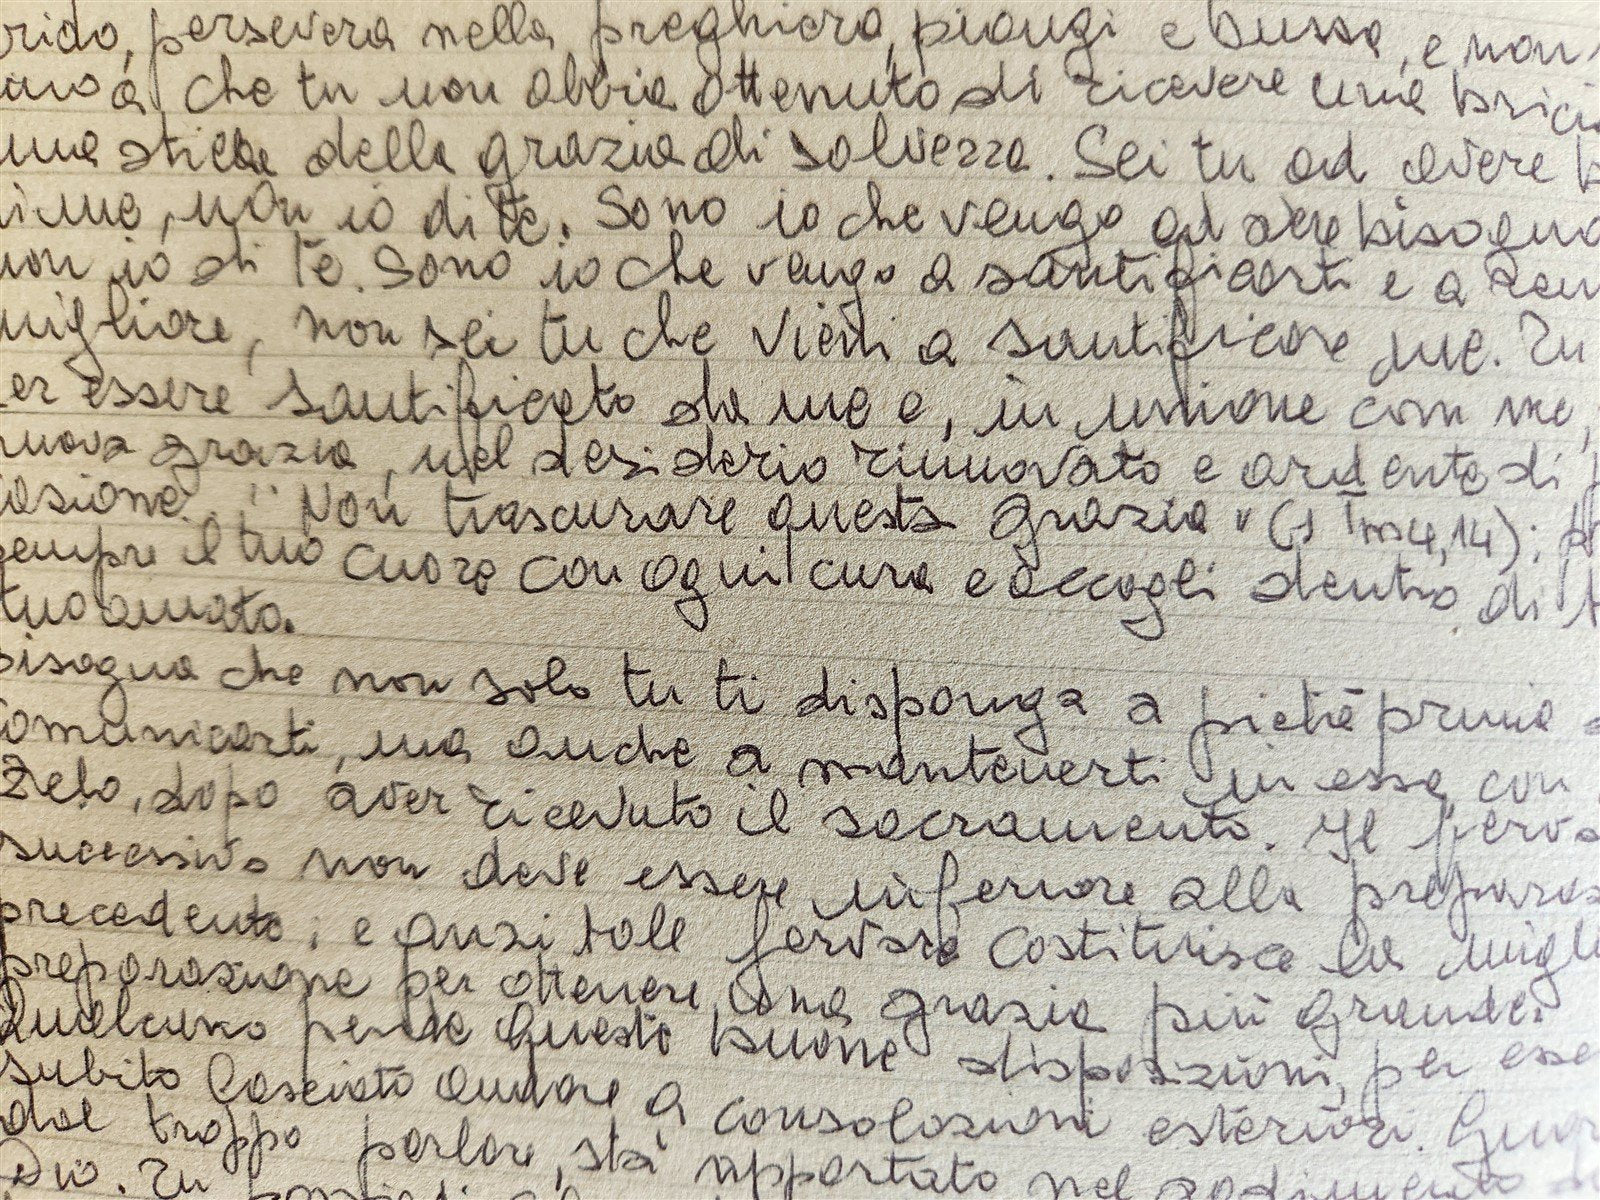 rido, persevera nella preghiera, piangi e bussa, e non
a che tu non abbia ottenuto di ricevere una bricio
una stilla della grazia di salvezza. Sei tu ad avere b
di me, non io di te. Sono io che vengo ad avere bisogno
non io di te. Sono io che vengo a santificarti e a ren
migliore, non sei tu che vieni a santificare me. Tu
er essere santificato da me e, in unione con me,
nuova grazia, nel desiderio rinnovato e ardente di
"Non trascurare questa grazia" (1 Tm 4,14); pr
sempre il tuo cuore con ogni cura e accogli dentro di t
tuo amato.
bisogna che non solo tu ti disponga a pietà prima d
comunicarti, ma anche a mantenerti in essa, con
zelo, dopo aver ricevuto il sacramento. Il fervo
successivo non deve essere inferiore alla preparaz
precedente; e anzi tale fervore costituisce la migli
preparazione per ottenere una grazia più grande.
Qualcuno perde queste buone disposizioni, per esse
subito lasciato andare a consolazioni esteriori. Guar
dal troppo parlare, sta appartato nel godimento
Dio. Tu